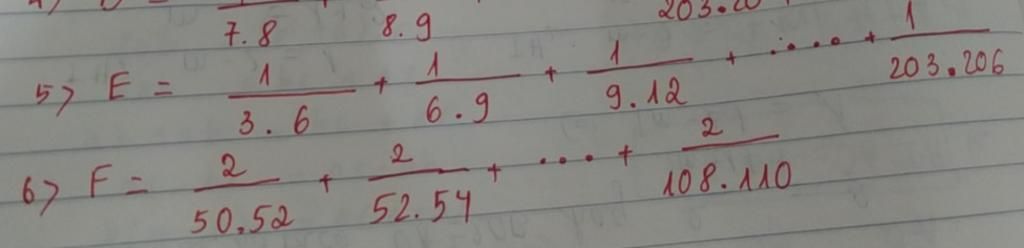 7.8 8.9 203.20
5) E = 1/3.6 + 1/6.9 + 1/9.12 + .... + 1/203.206
6) F = 2/50.52 + 2/52.54 + ... + 2/108.110